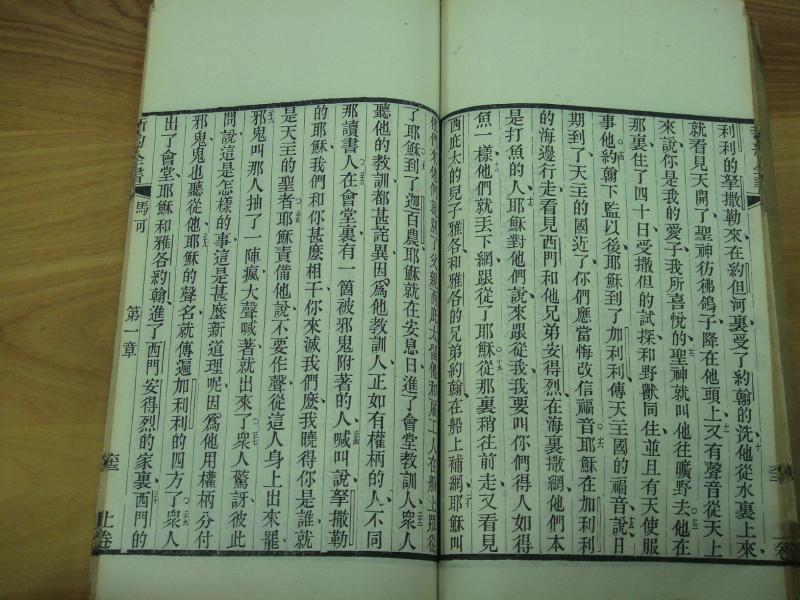 利利的拏撒勒來在約但河裏受了約翰的洗他從水裏上來
就看見天開了聖神彷彿鴿子降在他頭上又有聲音從天上
來說你是我的愛子我所喜悅的聖神就叫他往曠野去他在
那裏住了四十日受撒但的試探和野獸同住並且有天使服
事他約翰下監以後耶穌到了加利利傳天主國的福音說日
期到了天主的國近了你們應當悔改信福音耶穌在加利利
的海邊行走看見西門和他兄弟安得烈在海裏撒網他們本
是打魚的人耶穌對他們說來跟從我我要叫你們得人如得
魚一樣他們就丟下網跟從了耶穌從那裏稍往前走又看見
西庇太的兒子雅各和雅各的兄弟約翰在船上補網耶穌叫
他們來他們就別了父親西庇太留他和雇工人在船上跟從
了耶穌到了迦百農耶穌就在安息日進了會堂教訓人衆人
聽他的教訓都甚詫異因爲他教訓人正如有權柄的人不同
那讀書人在會堂裏有一箇被邪鬼附著的人喊叫說拏撒勒
的耶穌我們和你甚麼相干你來滅我們麼我曉得你是誰就
是天主的聖者耶穌責備他說不要作聲從這人身上出來罷
邪鬼叫那人抽了一陣瘋大聲喊著就出來了衆人驚訝彼此
問說這是怎樣的事這是甚麼新道理呢因爲他用權柄分付
邪鬼鬼也聽從他耶穌的聲名就傳遍加利利的四方了衆人
出了會堂耶穌和雅各約翰進了西門安得烈的家裏西門的
新約全書
馬可
第一章
上卷